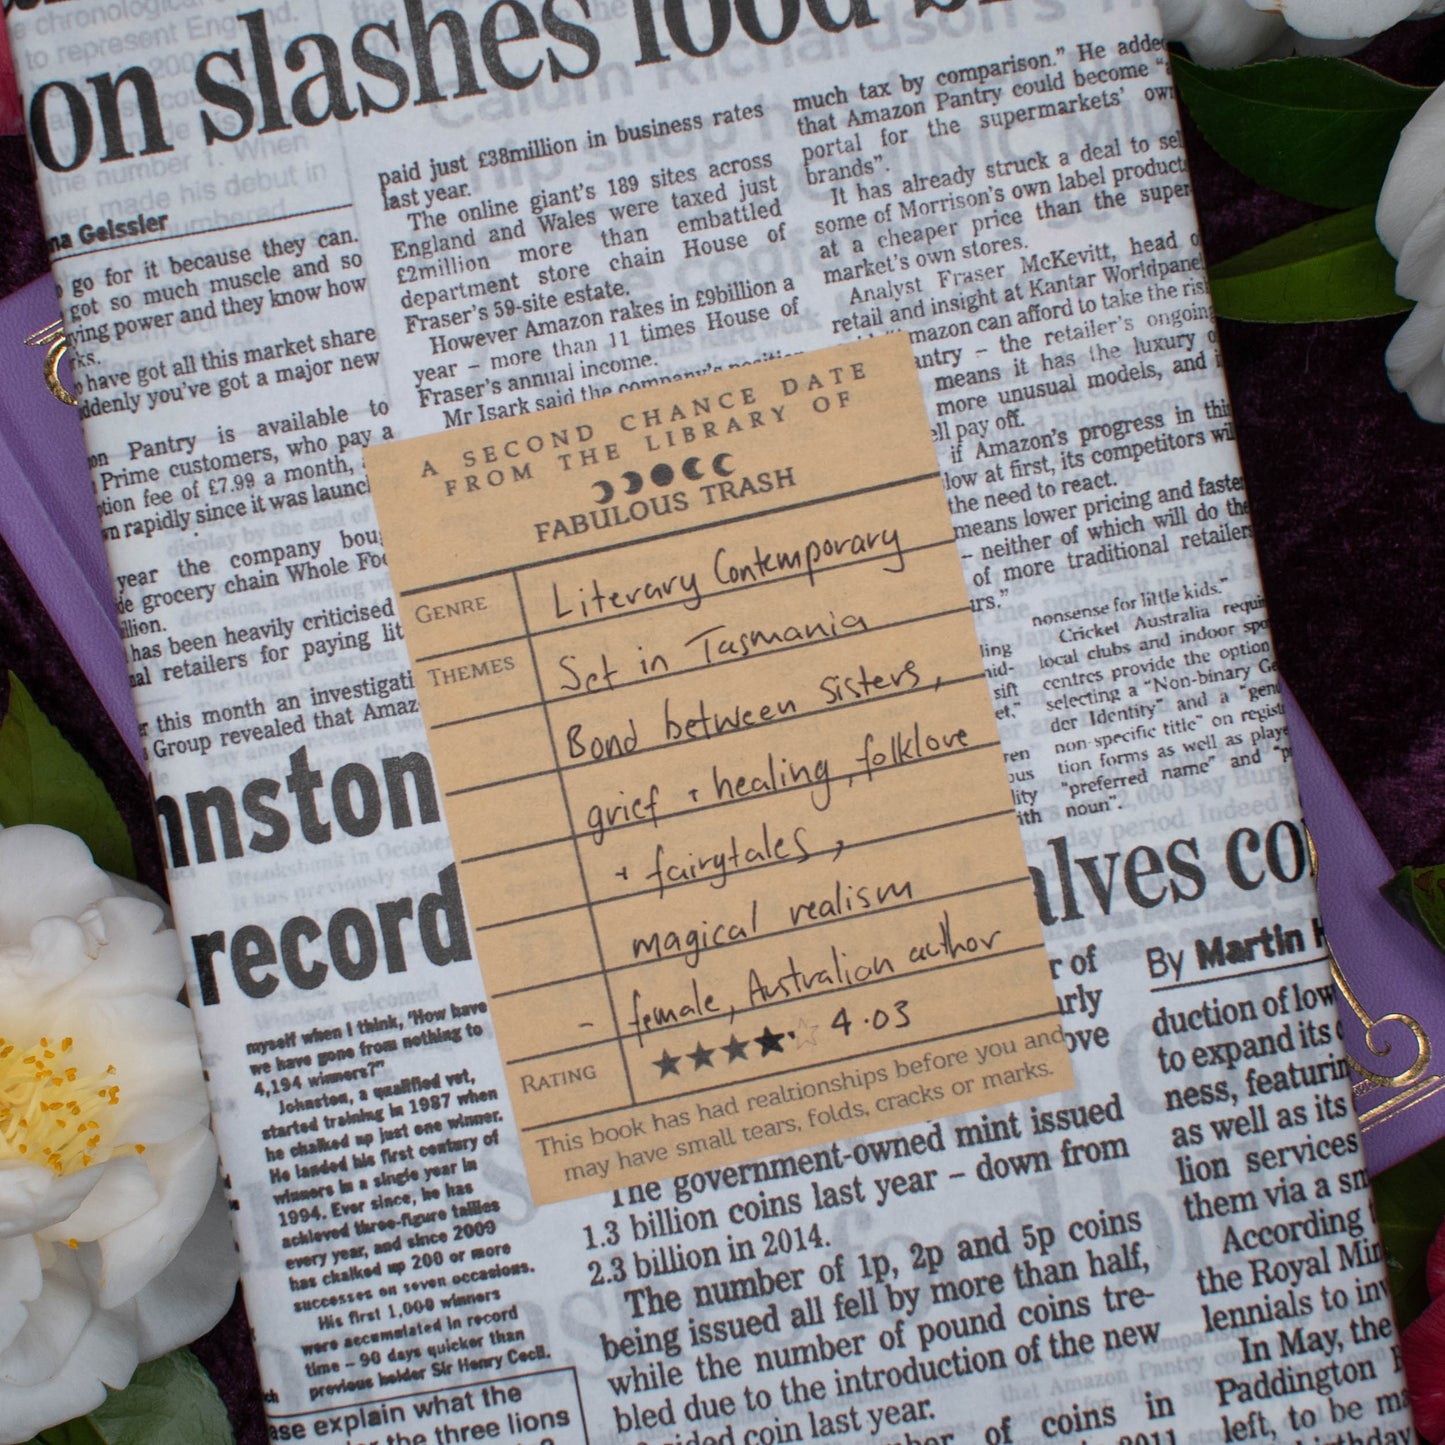 on slashes food
na Geissler
go for it because they can.
got so much muscle and so
ving power and they know how
rks.
have got all this market share
ddenly you've got a major new
on Pantry is available to
Prime customers, who pay a
tion fee of £7.99 a month,
n rapidly since it was launc
year the company bou
de grocery chain Whole Foo
illion.
has been heavily criticised
nal retailers for paying lit
r this month an investigati
Group revealed that Amaz
paid just £38million in business rates
last year.
The online giant's 189 sites across
England and Wales were taxed just
£2million more than embattled
department store chain House of
Fraser's 59-site estate.
However Amazon rakes in £9billion a
year – more than 11 times House of
Fraser's annual income.
Mr Isark said the company's position
much tax by comparison." He added
that Amazon Pantry could become "a
portal for the supermarkets' own
brands".
It has already struck a deal to sel
some of Morrison's own label product
at a cheaper price than the super
market's own stores.
Analyst Fraser McKevitt, head o
retail and insight at Kantar Worldpanel
mazon can afford to take the ris
antry – the retailer's ongoing
means it has the luxury o
more unusual models, and i
ll pay off.
if Amazon's progress in this
low at first, its competitors wil
the need to react.
means lower pricing and faste
– neither of which will do the
of more traditional retailers
rs."
A SECOND CHANCE DATE
FROM THE LIBRARY OF
FABULOUS TRASH
GENRE Literary Contemporary
THEMES Set in Tasmania
Bond between sisters,
grief + healing, folklore
+ fairytales,
magical realism
– female, Australian author
RATING 4.03
This book has had realtionships before you and
may have small tears, folds, cracks or marks.
ling
mid-
sift
et,"
ren
ous
lity
ith
nonsense for little kids."
Cricket Australia requi
local clubs and indoor spo
centres provide the option
selecting a "Non-binary Ge
der Identity" and a "gen
non-specific title" on regist
tion forms as well as playe
"preferred name" and "p
noun".
hnston
record
myself when I think, 'How have
we have gone from nothing to
4,194 winners?"
Johnston, a qualified vet,
started training in 1987 when
he chalked up just one winner.
He landed his first century of
winners in a single year in
1994. Ever since, he has
achieved three-figure tallies
every year, and since 2009
has chalked up 200 or more
successes on seven occasions.
His first 1,000 winners
were accumulated in record
time – 90 days quicker than
previous holder Sir Henry Cecil.
ase explain what the
the three lions
alves co
By Martin
r of
arly
ove
The government-owned mint issued
1.3 billion coins last year – down from
2.3 billion in 2014.
The number of 1p, 2p and 5p coins
being issued all fell by more than half,
while the number of pound coins tre-
bled due to the introduction of the new
sided coin last year.
of coins in
2011
duction of low
to expand its
ness, featurin
as well as its
lion services
them via a sm
According
the Royal Min
lennials to inv
In May, the
Paddington
left, to be ma
birthday